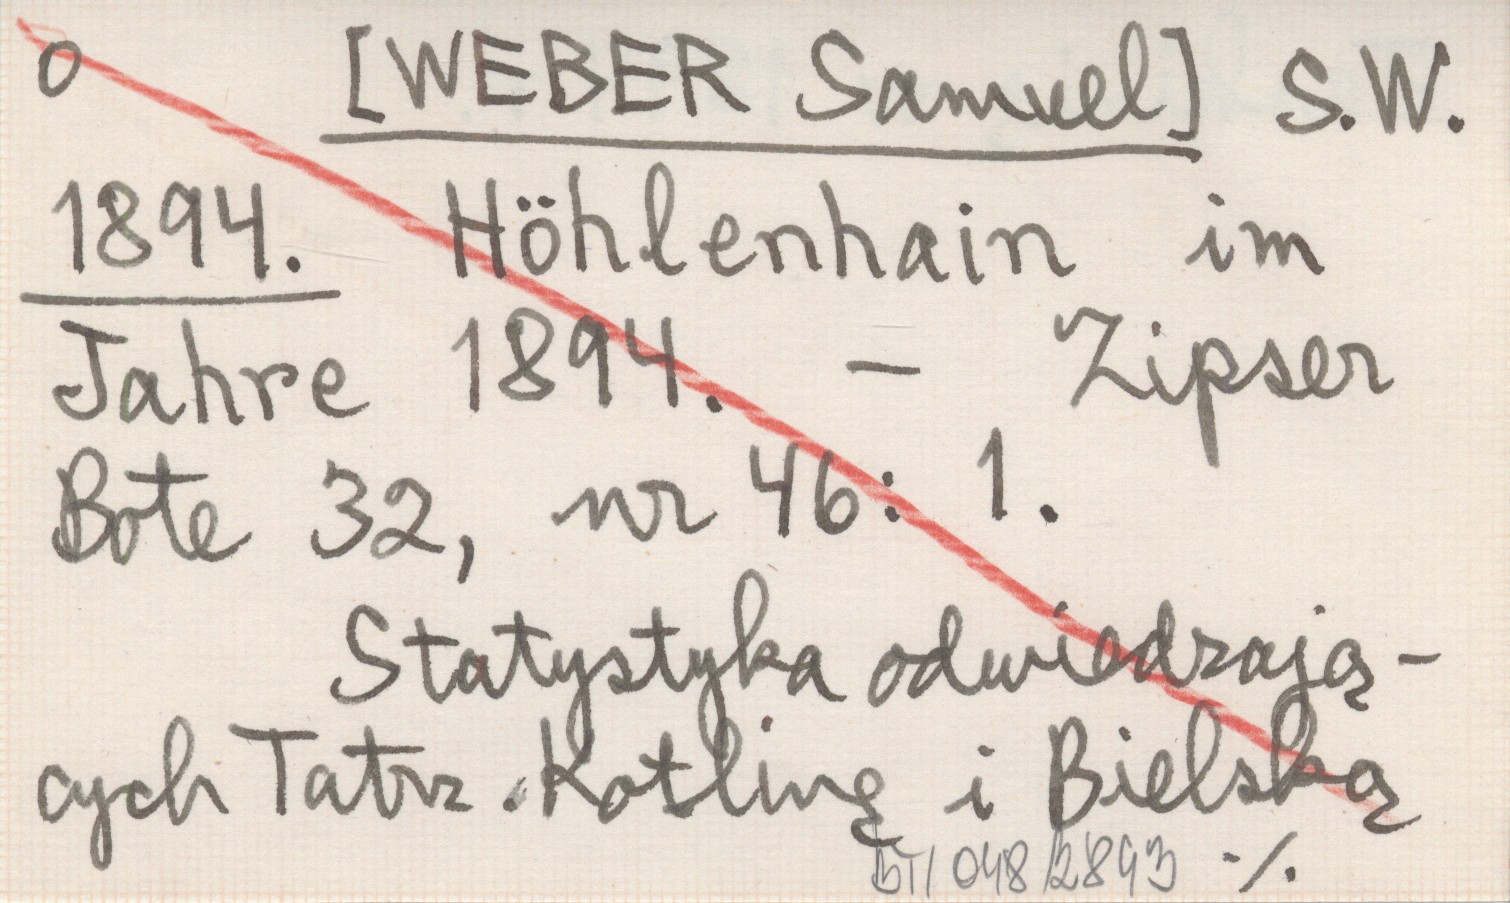 o [WEBER Samuel] S.W.
1894. Höhlenhain im
Jahre 1894. – Zipser
Bote 32, nr 46: 1.
Statystyka odwiedzają-
cych Tatrz. Kotlinę i Bielską
BT/048/2893 ·/.